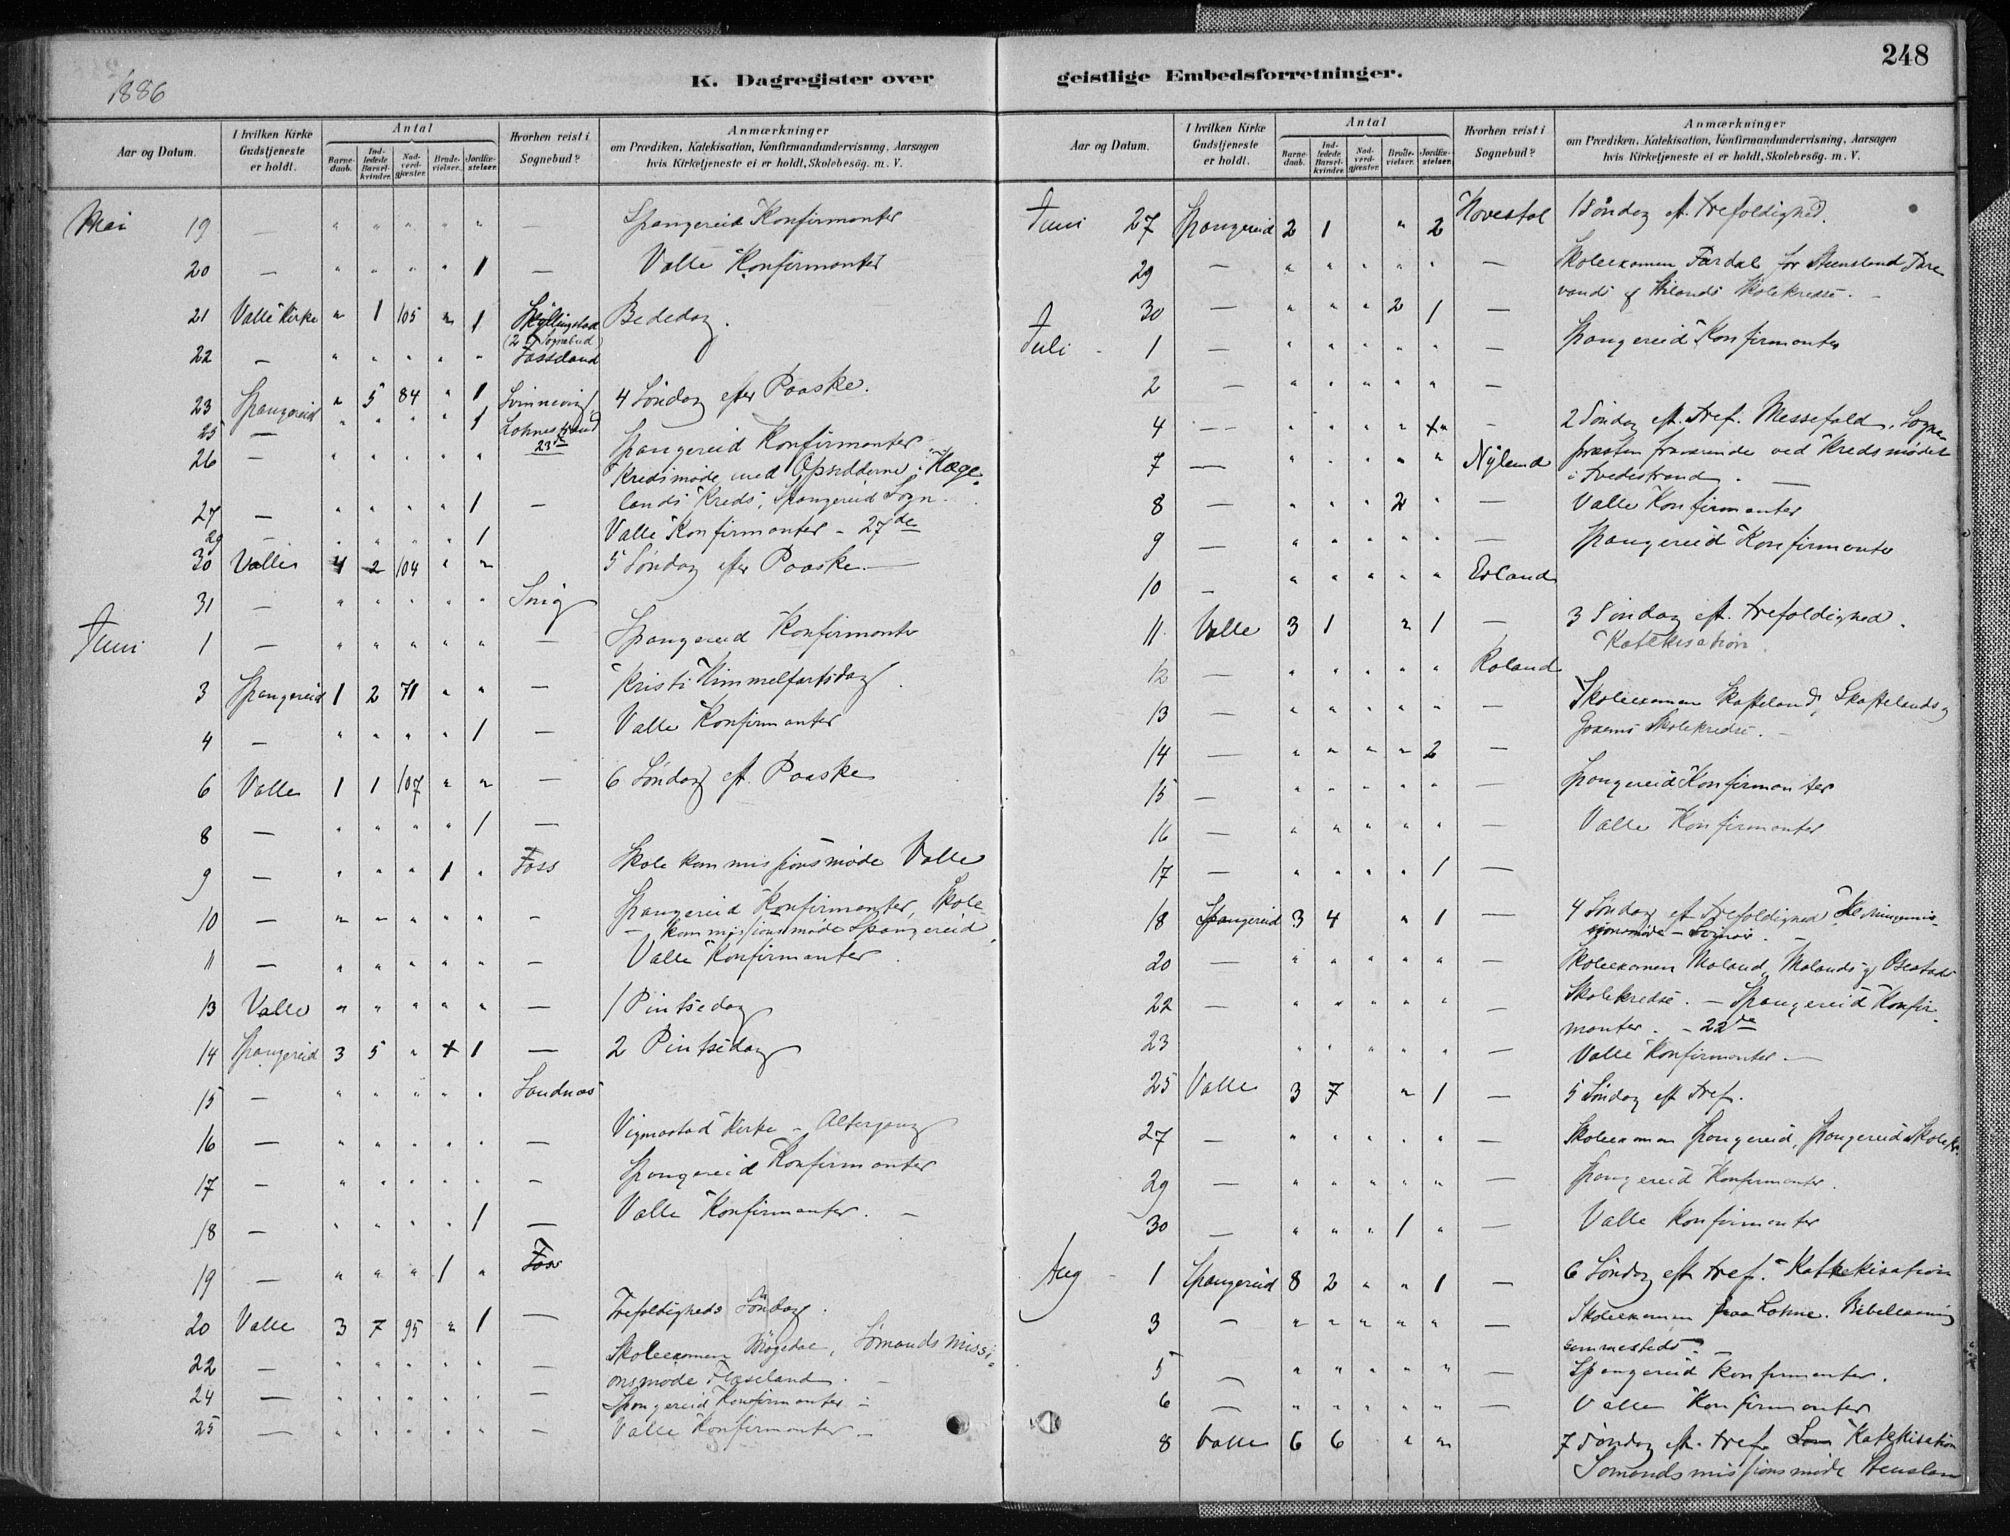 248
1886
K. Dagregister over geistlige Embedsforretninger.
Aar og Datum. I hvilken Kirke Gudstjeneste er holdt. Antal Barnedaab. Indledede Barselkvinder. Nadverdgjæster. Brudevielser. Jordfæstelser. Hvorhen reist i Sognebud? Anmærkninger om Prædiken, Katekisation, Konfirmandundervisning, Aarsagen hvis Kirketjeneste ei er holdt, Skolebesøg. m. V.
Mai 19 — " " " " " — Spangereid Konfirmanter
20 — " " " " 1 — Valle Konfirmanter
21 Valle Kirke " 1 105 " 1 Skjllingstad Bededag.
(2 Sognebud)
22 — " " " " " Fasseland
23 Spangereid " 5 84 " 1 Svinevig 4 Søndag efter Paaske.
25 — " " " " 1 Lohnestrand
23de
26 — " " " " " Spangereid Konfirmanter
Kredsmøde med Opsidderne i Hæge-
lands Kreds, Spangereid Sogn.
27 — " " " " 1 —
29 — " " " " 1 Valle Konfirmanter - 27de
30 Valle 4 2 104 " " 5 Søndag efter Paaske —
31 — " " " " " Snig
Juni 1 — " " " " " — Spangereid Konfirmanter
3 Spangereid 1 2 71 " " — Kristi Himmelfartsdag.
4 — " " " " 1 — Valle Konfirmanter
6 Valle 1 1 107 " " — 6 Søndag eft. Paaske
8 — " " " " 1 —
9 — " " " 1 " Foss Skolekommissionsmøde Valle
10 — " " " " " - Spangereid Konfirmanter, Skole-
— kommissionsmøde Spangereid.
11 — " " " " " — Valle Konfirmanter.
13 Valle " " " " " — 1 Pintsedag
14 Spangereid 3 5 " + 1 — 2 Pintsedag
15 — " " " " " Sandnæs
16 — " " " " " — Vigmostad Kirke - Altergang
17 — " " " " " - Spangereid Konfirmanter
18 — " " " " 1 — Valle Konfirmanter. —
19 — " " " 1 " Foss
20 Valle 3 7 95 " 1 — Trefoldigheds Søndag.
22 — " " " " " — Skoleexamen Møgedal, Sømandsmissi-
onsmøde Flaseland. —
24 — " " " " " — Spangereid Konfirmanter —
25 — " " " " " - Valle Konfirmanter —
Aar og Datum. I hvilken Kirke Gudstjeneste er holdt. Antal Barnedaab. Indledede Barselkvinder. Nadverdgjæster. Brudevielser. Jordfæstelser. Hvorhen reist i Sognebud? Anmærkninger om Prædiken, Katekisation, Konfirmandundervisning, Aarsagen hvis Kirketjeneste ei er holdt, Skolebesøg. m. V.
Juni 27 Spangereid 2 1 " 2 Hovestol 1 Søndag eft. trefoldighed.
29 — " " " " " — Skoleexamen Fardal for Stensland Fare
vands og Hilands Skolekredse. —
30 — " " " 2 1 —
Juli 1 — " " " " " — Spangereid Konfirmanter
2 — " " " " " —
4 — " " " " + - 2 Søndag eft. Tref. Messefald. Sogne
præsten fraværende ved Kredsmødet
7 — " " " " " Nyland i Tvedestrand. —
8 — " " " 2 " — Valle Konfirmanter
9 — " " " " " — Spangereid Konfirmanter
10 - " " " " " Eiland
11 Valle 3 1 " 1 — 3 Søndag eft. trefoldighed.
Katekisation
12 — " " " " " Roland
13 — " " " " " — Skoleexamen Skofteland, Skoftelands og
Gosems Skolekredse. —
14 — " " " " 2 —
15 — " " " " " — Spangereid Konfirmanter
16 — " " " " " — Valle Konfirmanter
17 — " " " " 1 —
18 Spangereid 3 4 " 1 — 4 Søndag eft. trefoldighed
20 — " " " " " — Skoleexamen Moland, Molands og Osestads
22 — " " " " " — Skolekredse. — Spangereid Konfir-
manter. - 22de
23 " " " " " — Valle Konfirmanter. —
25 Valle 3 7 " 1 — 5 Søndag eft Tref.
27 — " " " " " — Skoleexamen Spangereid, Spangereid Skolekr.
29 — " " " " " — Spangereid Konfirmanter.
30 — " " " 1 " — Valle Konfirmanter
Aug 1 Spangereid 8 2 " " 1 — 6 Søndag eft tref. Katekisation
3 - " " " " " — Skoleexamen paa Lohne. Bibellæsning
sammesteds —
5 — " " " " " — Spangereid Konfirmanter.
6 — " " " " " — Valle Konfirmanter
8 Valle 6 6 " " 7 Søndag eft. tref. Katekisation
Sømandsmissionsmøde Stenslan